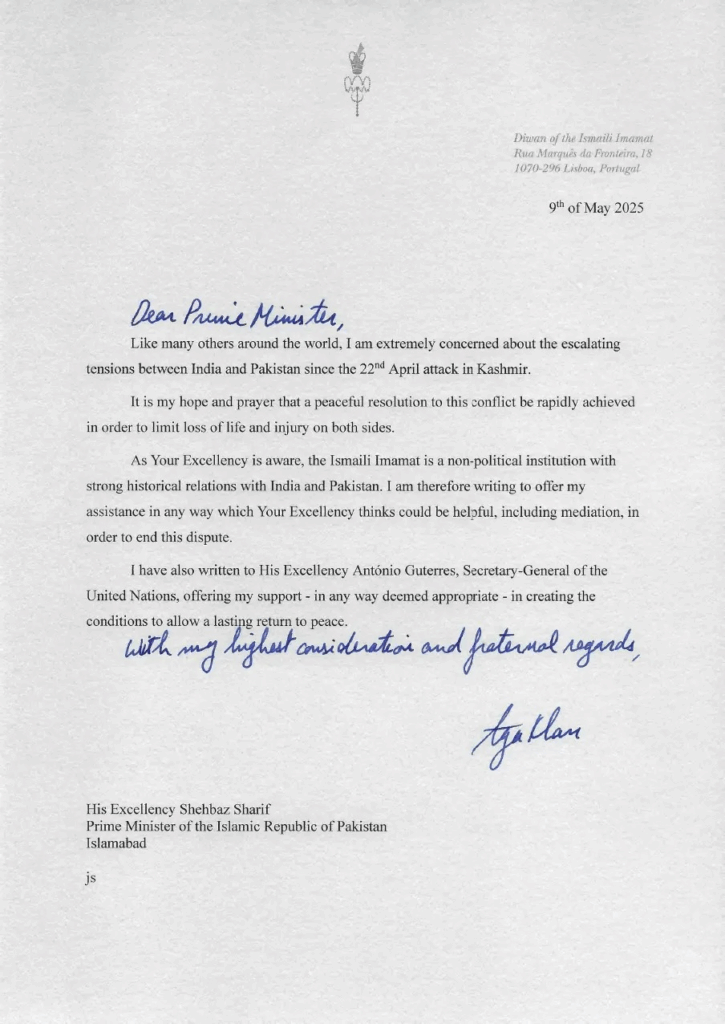 Diwan of the Ismaili Imamat
Rua Marquês da Fronteira, 18
1070-296 Lisboa, Portugal
9th of May 2025
Dear Prime Minister,
Like many others around the world, I am extremely concerned about the escalating
tensions between India and Pakistan since the 22nd April attack in Kashmir.
It is my hope and prayer that a peaceful resolution to this conflict be rapidly achieved
in order to limit loss of life and injury on both sides.
As Your Excellency is aware, the Ismaili Imamat is a non-political institution with
strong historical relations with India and Pakistan. I am therefore writing to offer my
assistance in any way which Your Excellency thinks could be helpful, including mediation, in
order to end this dispute.
I have also written to His Excellency António Guterres, Secretary-General of the
United Nations, offering my support - in any way deemed appropriate - in creating the
conditions to allow a lasting return to peace.
With my highest consideration and fraternal regards,
Aga Khan
His Excellency Shehbaz Sharif
Prime Minister of the Islamic Republic of Pakistan
Islamabad
js